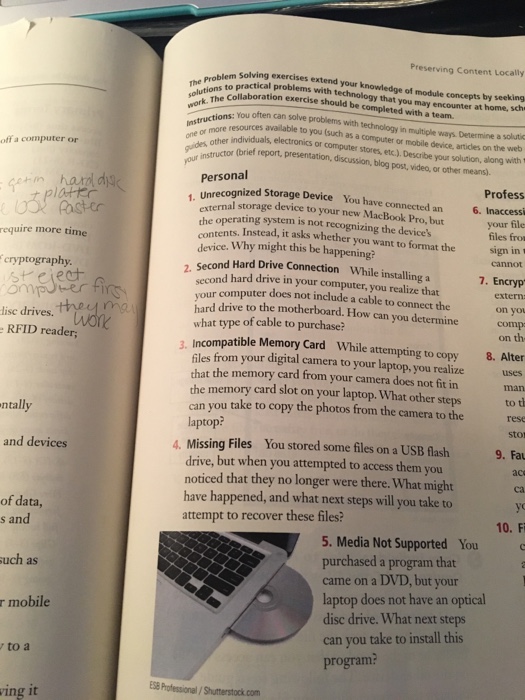 Preserving Content Locally
The Problem Solving exercises extend your knowledge of module concepts by seeking
solutions to practical problems with technology that you may encounter at home,
work. The Collaboration exercise should be completed with a team.
Instructions: You often can solve problems with technology in multiple ways. Determine a
one or more resources available to you (such as a computer or mobile device, articles on the web
guides, other individuals, electronics or computer stores, etc.). Describe your solution, along with
your instructor (brief report, presentation, discussion, blog post, video, or other means).
Personal
1. Unrecognized Storage Device You have connected an
external storage device to your new MacBook Pro, but
the operating system is not recognizing the device's
contents. Instead, it asks whether you want to format the
device. Why might this be happening?
2. Second Hard Drive Connection While installing a
second hard drive in your computer, you realize that
your computer does not include a cable to connect the
hard drive to the motherboard. How can you determine
what type of cable to purchase?
3. Incompatible Memory Card While attempting to copy
files from your digital camera to your laptop, you realize
that the memory card from your camera does not fit in
the memory card slot on your laptop. What other steps
can you take to copy the photos from the camera to the
laptop?
4. Missing Files You stored some files on a USB flash
drive, but when you attempted to access them you
noticed that they no longer were there. What might
have happened, and what next steps will you take to
attempt to recover these files?
5. Media Not Supported You
purchased a program that
came on a DVD, but your
laptop does not have an optical
disc drive. What next steps
can you take to install this
program?
ESB Professional / Shutterstock.com
Profess
6. Inaccessi
your file
files fro
sign in
cannot
7. Encryp
extern
on you
comp
on th
8. Alter
uses
man
to t
rese
stor
9. Fau
acc
ca
yo
10. F
off a computer or
hard disk
platter
faster
require more time
cryptography.
eject
first
disc drives. they may
work
RFID reader;
ntally
and devices
of data,
s and
such as
r mobile
to a
ving it